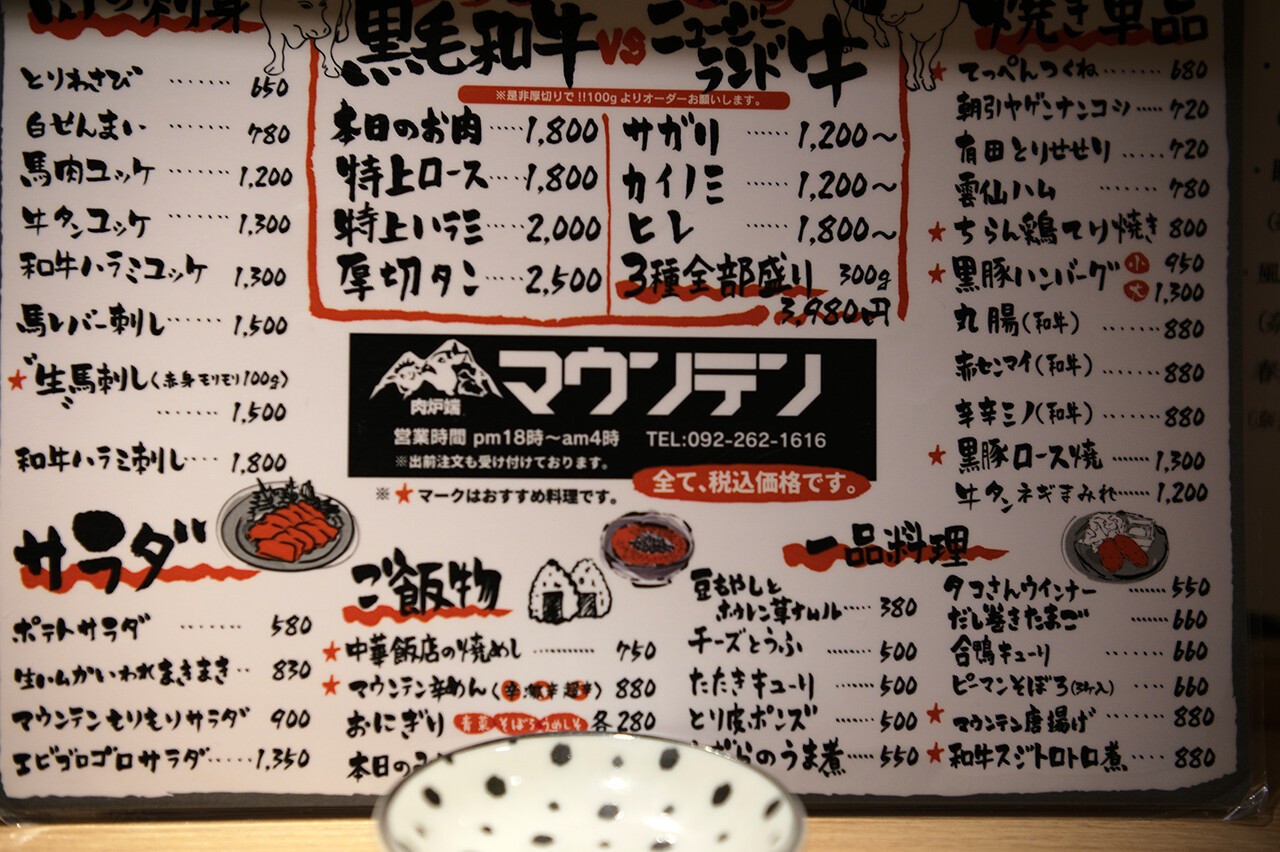 の刺身
とりわさび ……… 650
白せんまい ……… 780
馬肉ユッケ ……… 1,200
牛タンユッケ ……… 1,300
和牛ハラミユッケ 1,300
馬レバー刺し …… 1,500
★生馬刺し(赤身モリモリ100g)
……… 1,500
和牛ハラミ刺し … 1,800
黒毛和牛 VS ニュージーランド牛
※是非厚切りで!!100gよりオーダーお願いします。
本日のお肉 …… 1,800
特上ロース … 1,800
特上ハラミ … 2,000
厚切タン … 2,500
サガリ …… 1,200〜
カイノミ …… 1,200〜
ヒレ …… 1,800〜
3種全部盛り 300g
3,980円
焼き単品
★てっぺんつくね …… 680
朝引ヤゲンナンコシ … 720
有田とりせせり …… 720
雲仙ハム ……… 780
★ちらん鶏てり焼き 800
★黒豚ハンバーグ 小 950
大 1,300
丸腸(和牛) …… 880
赤センマイ(和牛) …… 880
辛辛ミノ(和牛) …… 880
★黒豚ロース焼 …… 1,300
牛タンネギまみれ …… 1,200
肉炉端 マウンテン
営業時間 pm18時〜am4時 TEL:092-262-1616
※出前注文も受け付けております。
※★マークはおすすめ料理です。
全て、税込価格です。
サラダ
ポテトサラダ ……… 580
生ハムかいわれまきまき … 830
マウンテンもりもりサラダ 900
エビゴロゴロサラダ …… 1,350
ご飯物
★中華飯店の焼めし ……… 750
★マウンテン辛めん(辛・激辛・超辛) 880
おにぎり 青菜 そぼろ うめしそ 各280
本日の
一品料理
豆もやしと
ホウレン草ナムル …… 380
チーズとうふ …… 500
たたきキューリ …… 500
とり皮ポンズ …… 500
らのうま煮 …… 550
タコさんウインナー …… 550
だし巻きたまご …… 660
合鴨キューリ …… 660
ピーマンそぼろ(3ケ入) …… 660
★マウンテン唐揚げ …… 880
★和牛スジトロトロ煮 …… 880